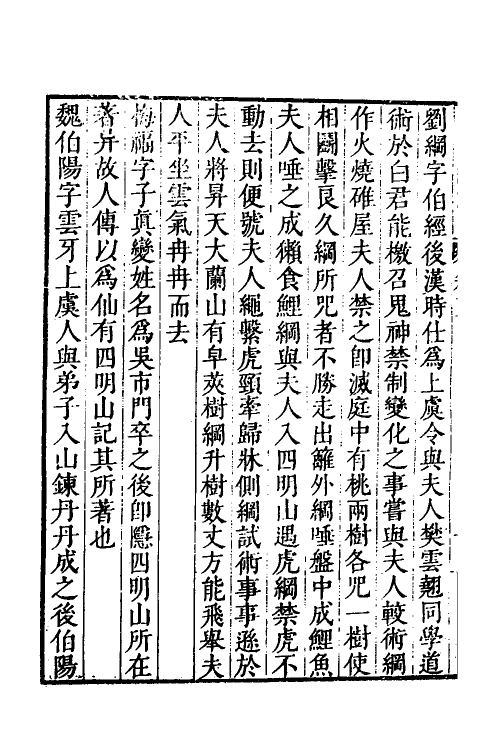 劉綱字伯經後漢時仕爲上虞令與夫人樊雲翹同學道
術於白君能檄召鬼神禁制變化之事嘗與夫人較術綱
作火燒碓屋夫人禁之卽滅庭中有桃兩樹各咒一樹使
相鬭擊良久綱所咒者不勝走出籬外綱唾盤中成鯉魚
夫人唾之成獺食鯉綱與夫人入四明山遇虎綱禁虎不
動去則便號夫人繩繫虎頸牽歸牀側綱試術事事遜於
夫人將昇天大蘭山有皁莢樹綱升樹數丈方能飛舉夫
人平坐雲氣冉冉而去
梅福字子真變姓名爲吳市門卒之後卽隱四明山所在
著屴故人傳以爲仙有四明山記其所著也
魏伯陽字雲牙上虞人與弟子入山鍊丹丹成之後伯陽